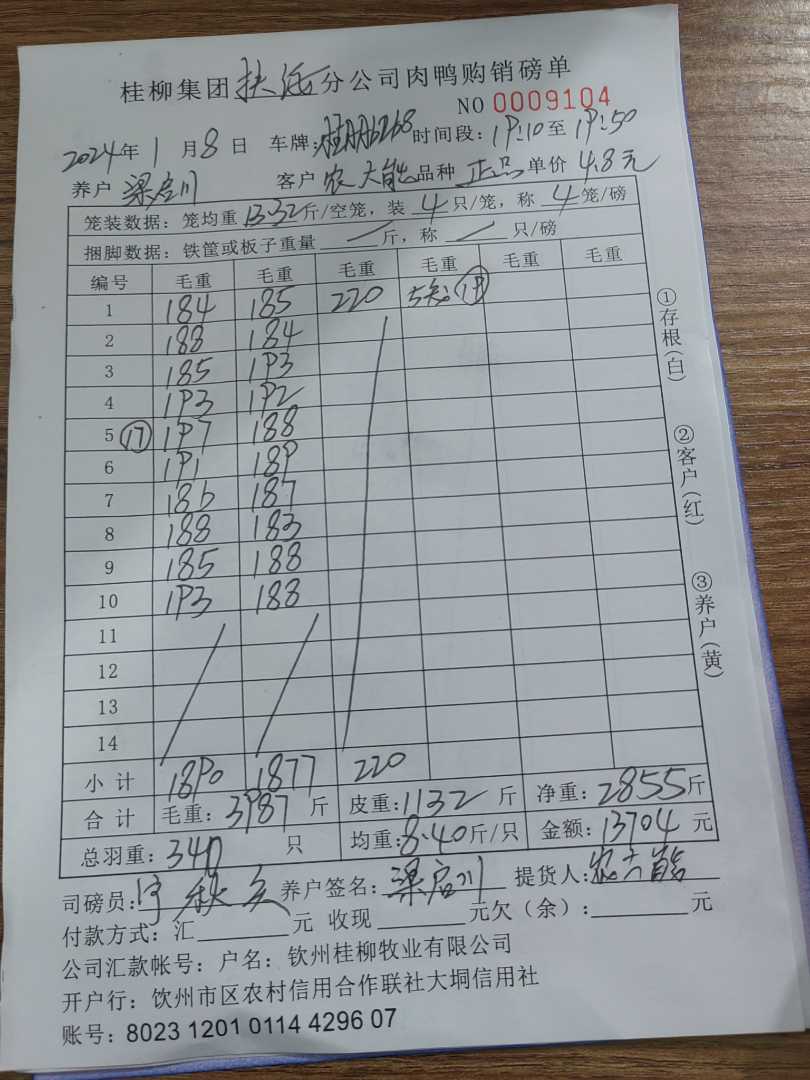 桂柳集团扶绥分公司肉鸭购销磅单
NO 0009104
2024年1月8日 车牌: 时间段:19:10至19:50
养户 梁启川 客户 农大能 品种 正品 单价 4.8元
笼装数据:笼均重13.32斤/空笼,装4只/笼,称4笼/磅
捆脚数据:铁筐或板子重量 斤,称 只/磅
编号 毛重 毛重 毛重 毛重 毛重 毛重
1 184 185 220 ⑲
2 188 184
3 185 193
4 193 192
5 ⑰ 197 188
6 191 189
7 186 187
8 188 183
9 185 188
10 193 188
11
12
13
14
小计 1890 1877 220
合计 毛重:3987斤 皮重:1132斤 净重:2855斤
总羽重:340只 均重:8.40斤/只 金额:13704元
司磅员: 养户签名:梁启川 提货人:农大能
付款方式:汇 元 收现 元欠(余): 元
公司汇款帐号:户名:钦州桂柳牧业有限公司
开户行:钦州市区农村信用合作联社大垌信用社
账号:8023 1201 0114 4296 07
①存根(白)
②客户(红)
③养户(黄)